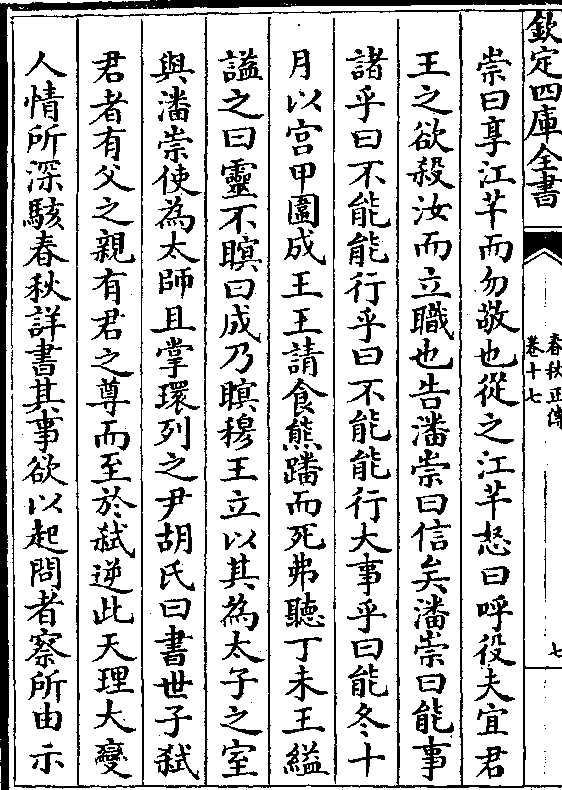 欽定四庫全書
春秋正傳
卷十七
七
崇曰享江芊而勿敬也從之江芊怒曰呼役夫宜君
王之欲殺汝而立職也告潘崇曰信矣潘崇曰能事
諸乎曰不能能行乎曰不能能行大事乎曰能冬十
月以宫甲圍成王王請食熊蹯而死弗聽丁未王縊
諡之曰靈不瞑曰成乃瞑穆王立以其為太子之室
與潘崇使為太師且掌環列之尹胡氏曰書世子弑
君者有父之親有君之尊而至於弑逆此天理大變
人情所深駭春秋詳書其事欲以起問者察所由示